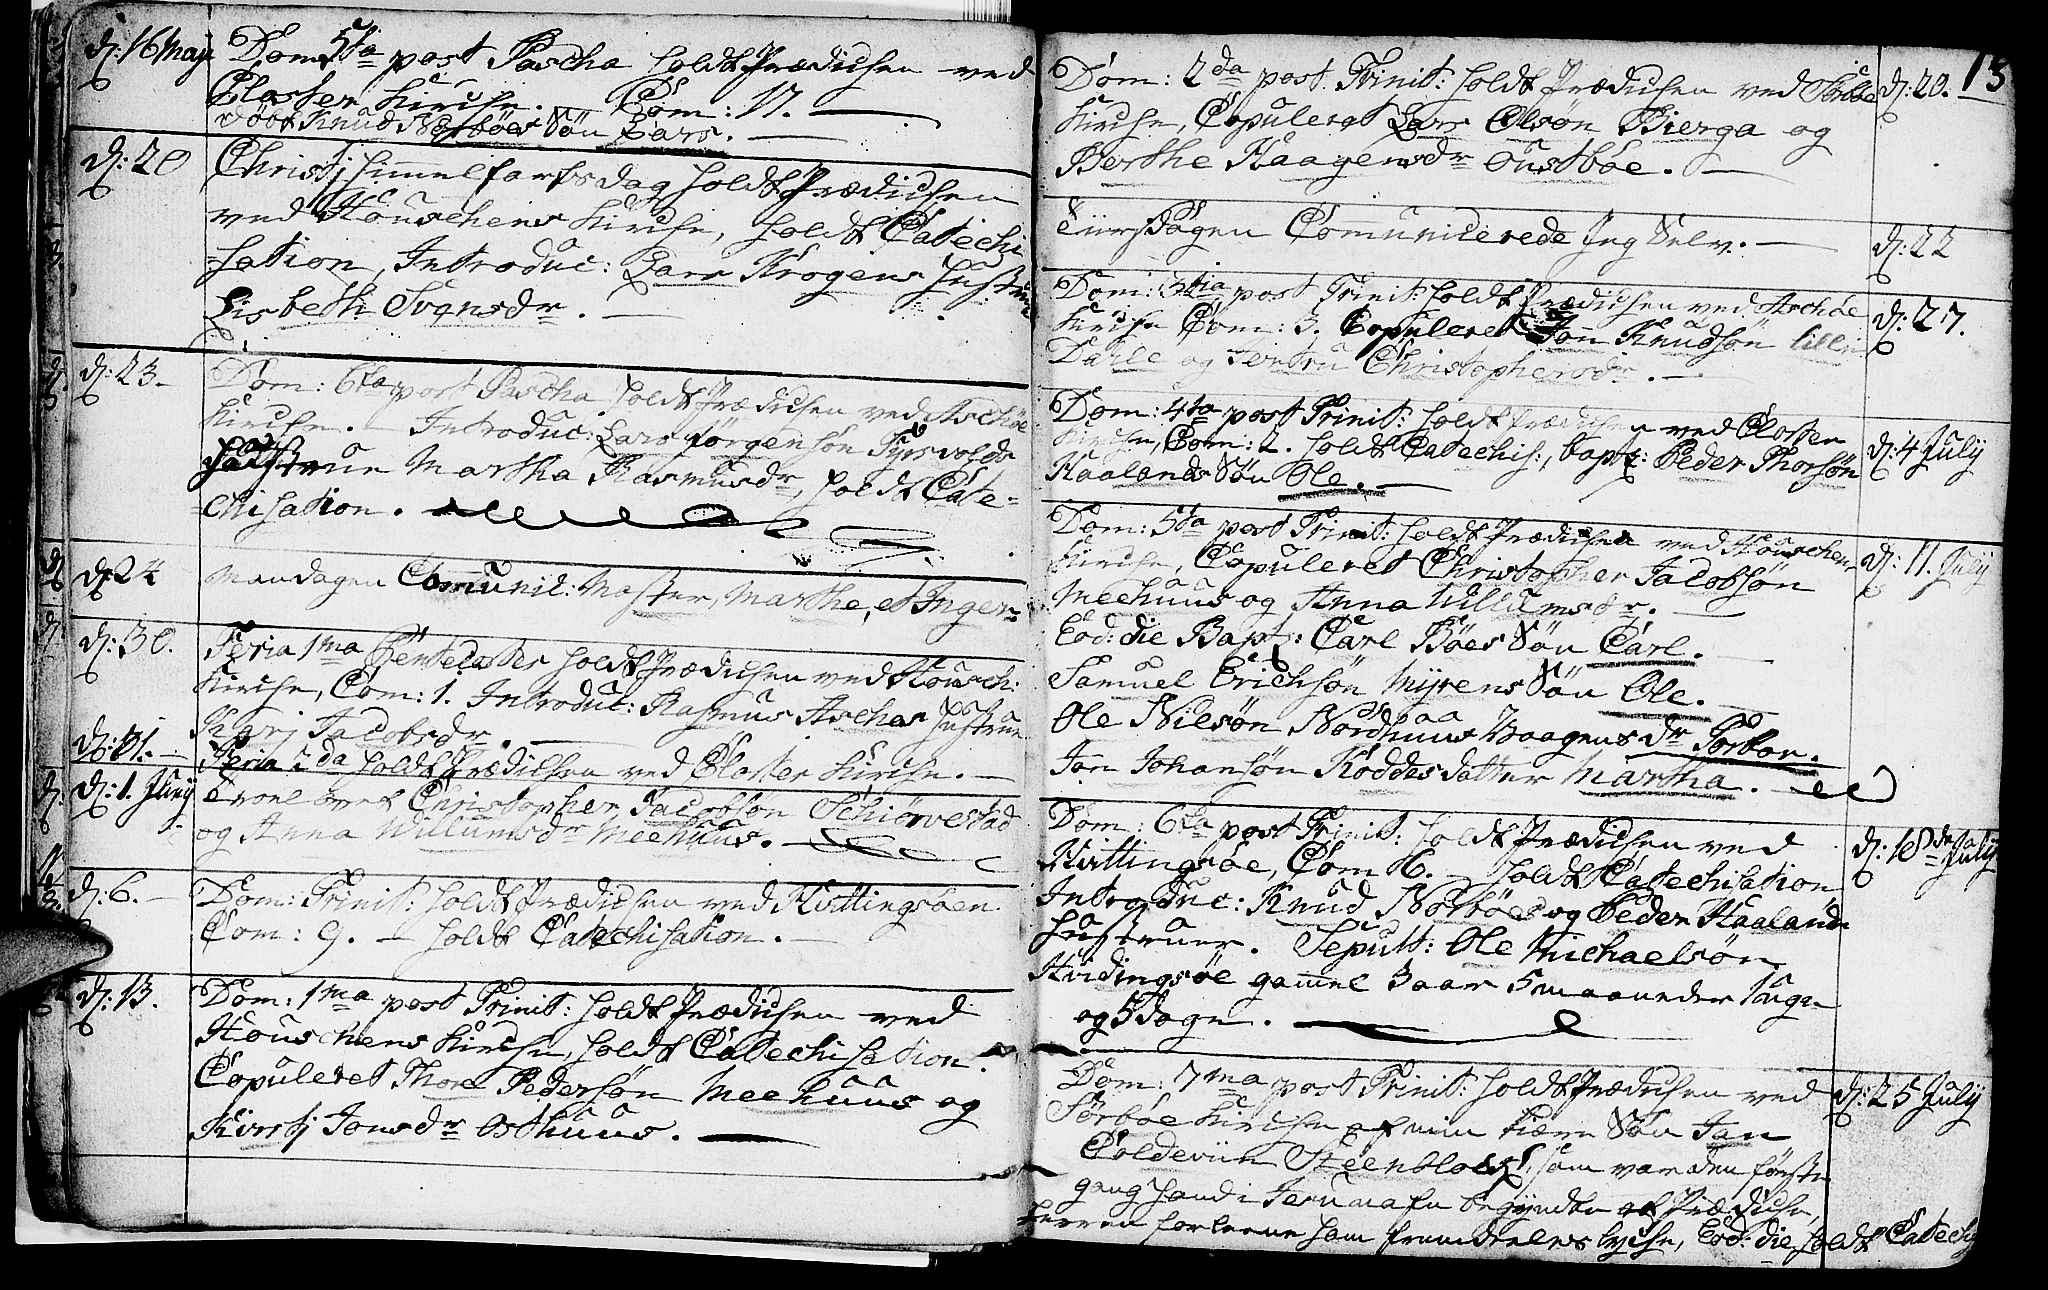 d: 16 May Dom 5ta post Pascha holdt Prædichen ved
Closter Kirche. Com: 17.
døbt Knud Norbøes Søn Lars.
d: 20 Christi himmelfartsdag holdt Prædichen
ved Houschens Kirche, holdt Catechi
sation, Introduc: Lars Krogens Hustrue
Lisbeth Svensdr.
d: 23. Dom: 6ta post Pascha holdt Prædichen ved Aschøe
Kirche. Introduc: Lars Jørgensøn Tyrsvolds
Hustrue Martha Rasmusdr, holdt Cate-
chisation.
d: 24 Mandagen Comunic: Mester, Marthe, et Inger
d: 30. Feria 1ma Pentecostes holdt Prædichen ved Housch:
Kirche, Com: 1. Introduc: Rasmus Aschøe Hustrue
Kari Jacobsdr.
d: 31. Feria 2da holdt Prædichen ved Closter Kirche.
d: 1. Junij Troelovet Christopher Jacobsøn Schiørvestad
og Anna Willumsdr Meehuus.
d: 6. Dom: Trinit: holdt Prædichen ved Hvittingsøen
Com: 9. holdt Catechisation.
d: 13. Dom: 1ma post Trinit: holdt Prædichen ved
Houschens Kirche, holdt Catechisation.
Copuleret Thore Pedersøn Meehuus og
Kirstj Jonsdr Osthuus.
13
Dom: 2da post Trinit: holdt Prædichen ved Sørbøe d: 20.
Kirche, Copuleret Lars Olsøn Bierga og
Berthe Haagensdr Oustbøe.
Tiirsdagen Comunicerede Jeg Selv. d: 22
Dom: 3tia post Trinit: holdt Prædichen ved Aschøe d: 27.
Kirche Com: 3. Copuleret Jon Knudsøn lille
Dahle og Jertru Christophersdr.
Dom: 4ta post Trinit: holdt Prædichen ved Closter
Kirche, Com: 2. holdt Catechis:, bapt: Peder Thorsøn d: 4 July
Haalands Søn Ole.
Dom: 5ta post Trinit: holdt Prædichen ved Houschens
Kirche, Copuleret Christopher Jacobsøn d: 11. July
Meehuus og Anna Willumsdr.
Eod: die Bapt: Carl Bøes Søn Carl.
Samuel Erichsøn Myrens Søn Ole.
Ole Nilsøn Nordhuus Haagens dr Torbor.
Jon Johansøn Koddes datter Martha.
Dom: 6ta post Trinit: holdt Prædichen ved
Hvittingsøe, Com 6. holdt Catechisation d: 18de July
Introduc: Knud Norbøes og Peder Haalands
Hustruer. Sepult: Ole Michaelsøn
Hvidingsøe gamel 3 aar 5 maaneder 1 uge
og 5 dage.
Dom: 7ma post Trinit: holdt Prædichen ved d: 25 July
Sørbøe Kirche af min kiære Søn Jan
Coldeviin Steenblock, som var den første
gang hand i Jesu nafn begyndte at Prædiche,
Herren forleene ham fremdeeles lyche, Eod: die holdt Catechi